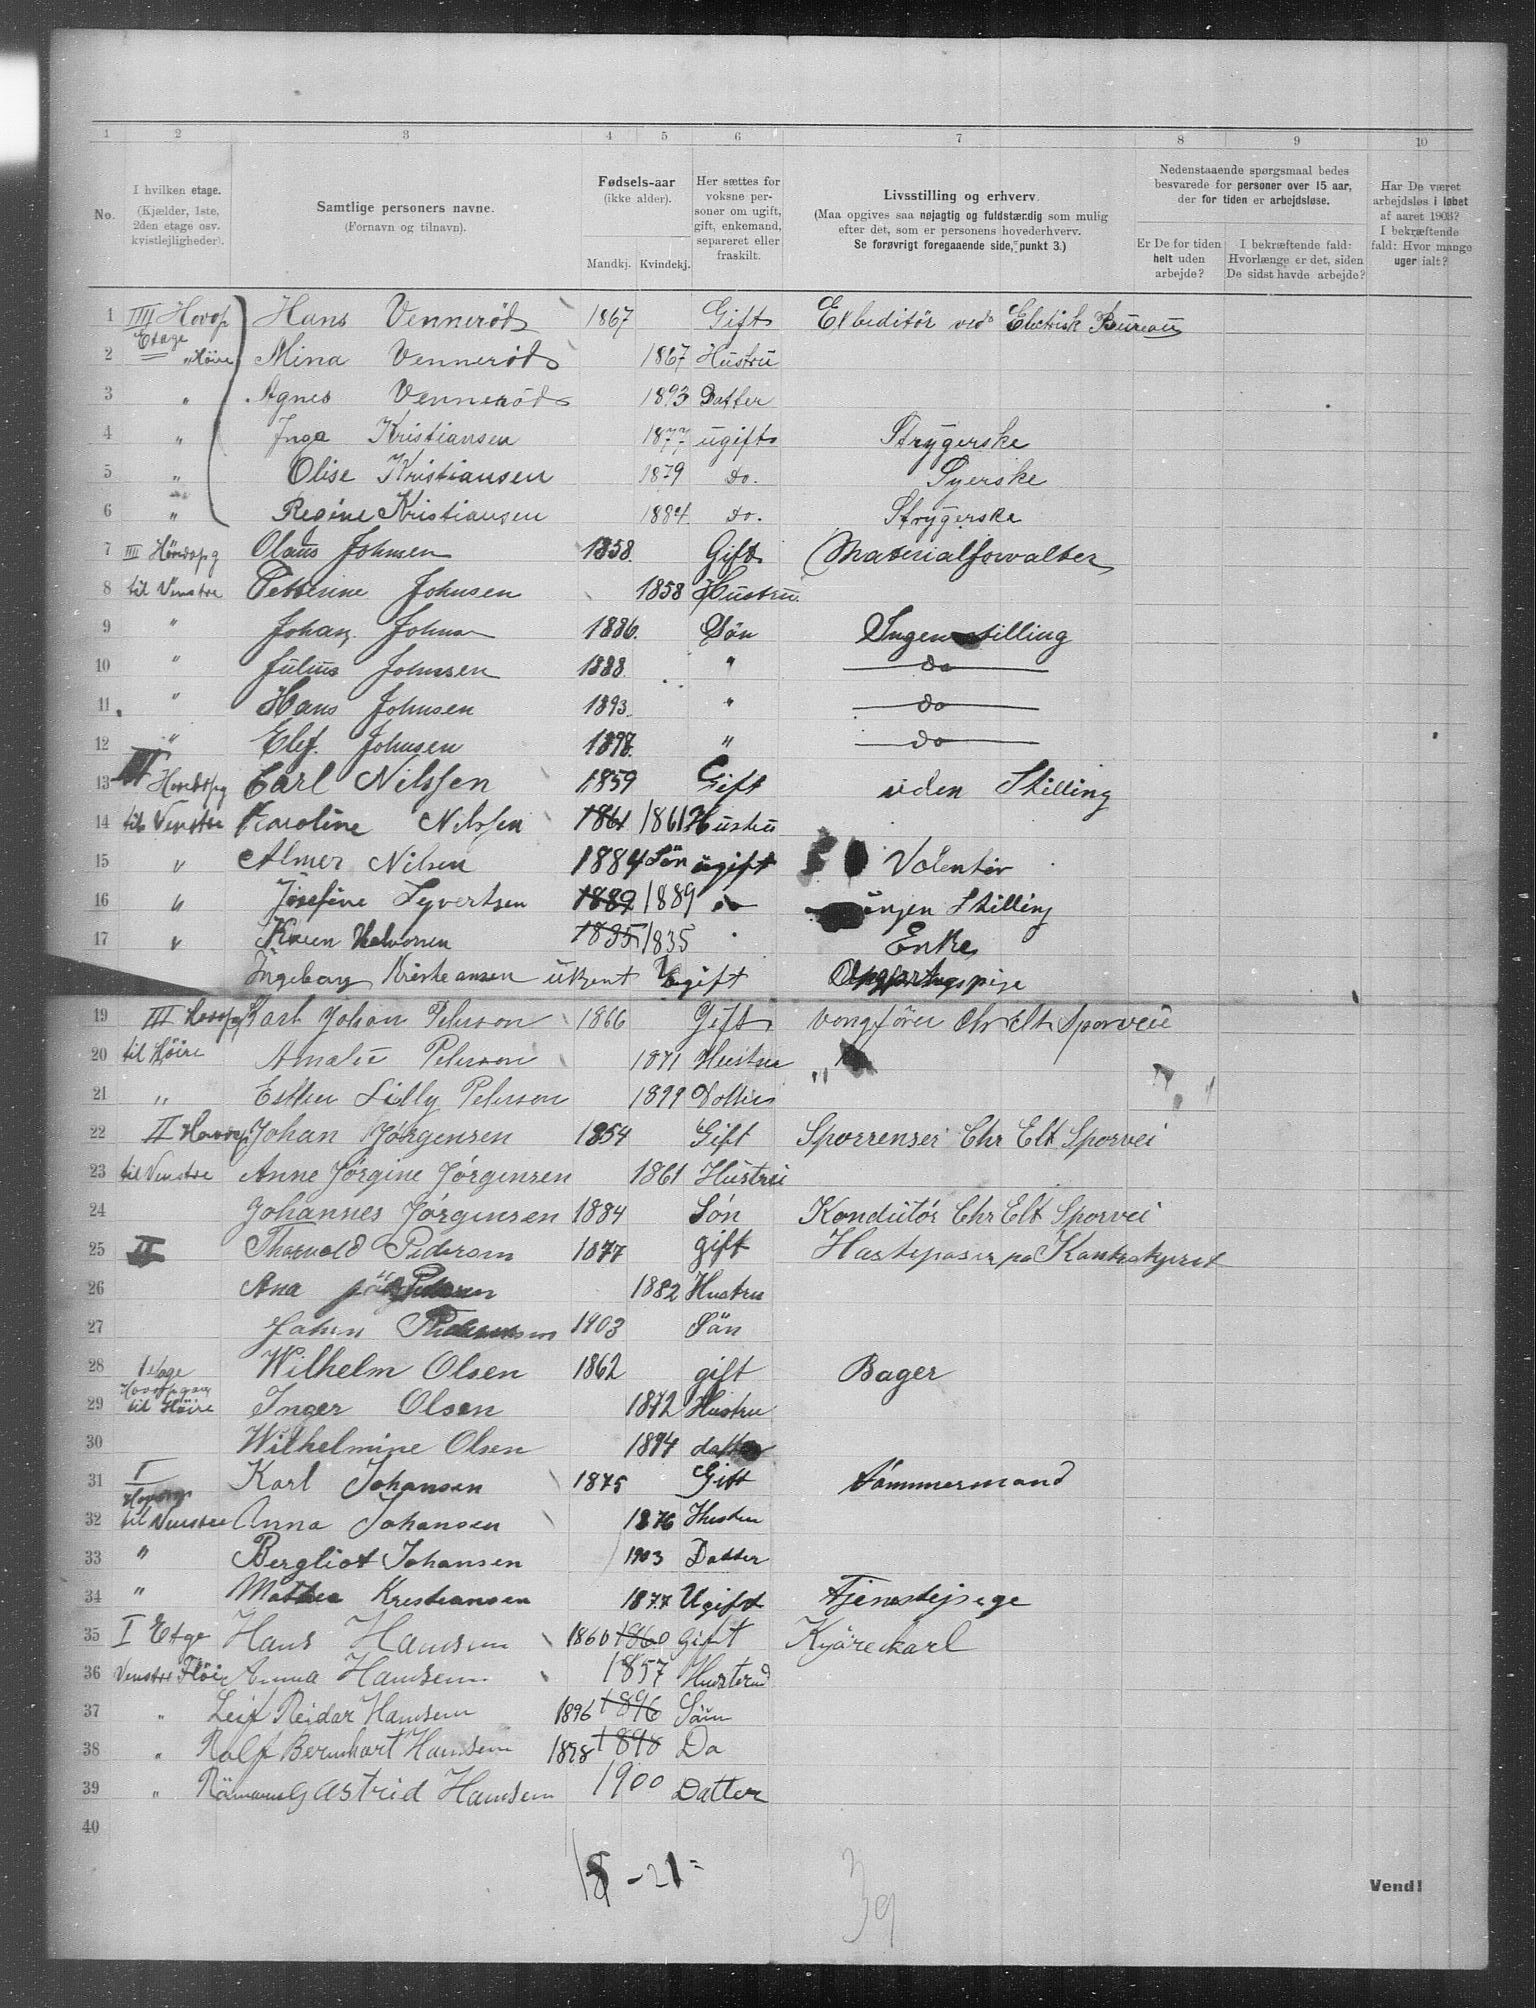 1 2 3 4 5 6 7 8 9 10
No.
I hvilken etage.
(Kjælder, 1ste,
2den etage osv.
kvistlejligheder).
Samtlige personers navne.
(Fornavn og tilnavn).
Fødsels-aar
(ikke alder).
Mandkj. Kvindekj.
Her sættes for
voksne per-
soner om ugift,
gift, enkemand,
separeret eller
fraskilt.
Livsstilling og erhverv.
(Maa opgives saa nøjagtig og fuldstærdig som mulig
efter det, som er personens hovederhverv.
Se forøvrigt foregaaende side, punkt 3.)
Nedenstaaende spørgsmaal bedes
besvarede for personer over 15 aar,
der for tiden er arbejdsløse.
Er De for tiden
helt uden
arbejde?
I bekræftende fald:
Hvorlænge er det, siden
De sidst havde arbejde?
Har De været
arbejdsløs i løbet
af aaret 1903?
I bekræftende
fald: Hvor mange
uger ialt?
1 IIII Hovop Etage Hans Vennerød 1867 Gift Exbeditør ved Elektrisk Bureau
2 " Høire Mina Vennerød 1867 Hustru
3 " Agnes Vennerød 1893 Datter
4 " Inga Kristiansen 1877 ugift Strygerske
5 " Olise Kristiansen 1879 do. Syerske
6 " Regine Kristiansen 1884 do. Strygerske
7 IIII Olaus Johnsen 1858 Gift Materialforvalter
8 til Venstre Petterine Johnsen 1858 Hustru
9 " Johan Johnsen 1886 Søn Ingen stilling
10 " Julius Johnsen 1888 " do
11 " Hans Johnsen 1893 " do
12 " Elef Johnsen 1898 " do
13 III Carl Nilssen 1859 Gift uden Stilling
14 til Venstre Karoline Nilssen 1861 1861 Hustru
15 " Almer Nilsen 1884 Søn ugift Volentør
16 " Josefine Syvertsen 1889 1889 do ingen Stilling
17 " Karen Halvorsen 1835 1835 " Enke
Ingeborg Kristiansen ukjent Ugift
19 III Karl Johan Peterson 1866 Gift Vongfører Chr Elt Sporvei
20 til Høire Amalie Peterson 1871 Hustru "
21 " Esther Lilly Peterson 1899 Datter
22 II Johan Jørgensen 1854 Gift Sporrenser Chr Elt Sporvei
23 til Venstre Anne Jørgine Jørgensen 1861 Hustru
24 Johannes Jørgensen 1884 Søn Kondutør Chr Elt Sporvei
25 II Thorvald Pedersen 1877 gift Hestepaser
26 Ana Pedersen 1882 Hustru
27 Johan Pedersen 1903 Søn
28 1 etage Wilhelm Olsen 1862 gift Bager
29 til Høire Inger Olsen 1872 Hustru
30 Wilhelmine Olsen 1894 datter
31 I Karl Johansen 1875 Gift tømmermand
32 til Venstre Anna Johansen 1876 Hustru
33 " Bergliot Johansen 1903 Datter
34 " Mathea Kristiansen 1877 Ugift Tjenestepige
35 I Etge Hans Hansen 1860 1860 gift Kjørekarl
36 Venstre Fløi Anna Hansen 1857 Husteru
37 " Leif Reidar Hansen 1896 1896 Søn
38 " Rolf Bernhart Hansen 1898 1898 Do
39 " Astrid Hansen 1900 Datter
40
18 - 21 =
39
Vend!